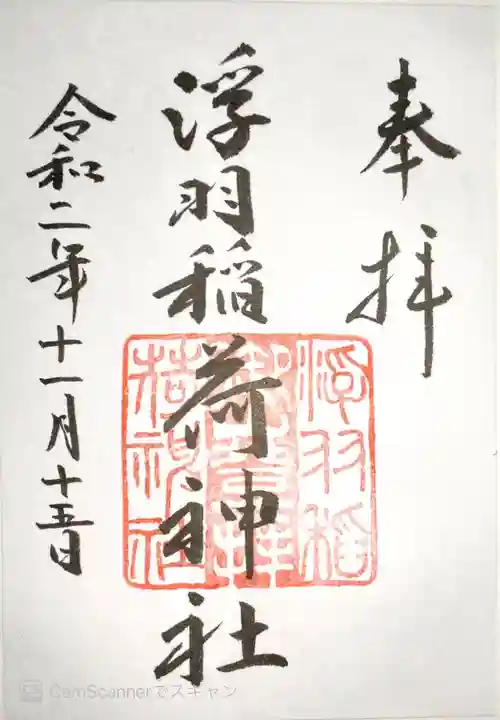 奉拝
浮羽稲荷神社
令和二年十一月十五日
浮羽稲
荷神社
CamScannerでスキャン